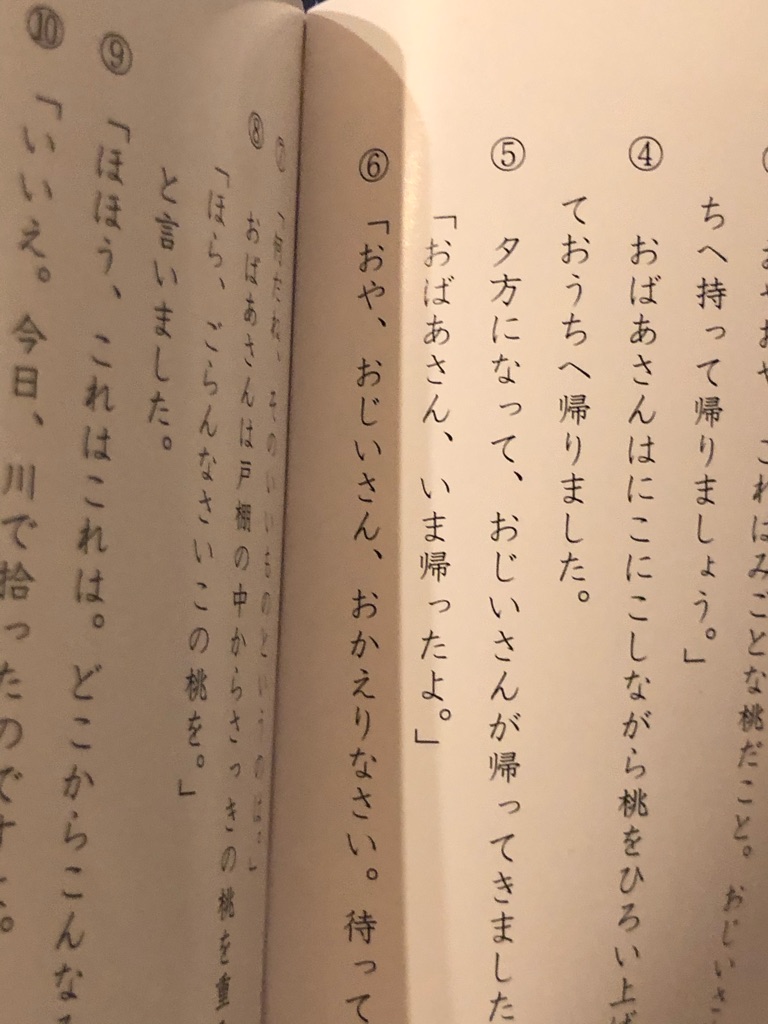 おやおや、これはみごとな桃だこと。おじいさ
ちへ持って帰りましょう。」
④ おばあさんはにこにこしながら桃をひろい上げ
ておうちへ帰りました。
⑤ 夕方になって、おじいさんが帰ってきました
「おばあさん、いま帰ったよ。」
⑥ 「おや、おじいさん、おかえりなさい。待って
⑦ 「何だね、そのいいものというのは。」
⑧ おばあさんは戸棚の中からさっきの桃を重
「ほら、ごらんなさいこの桃を。」
と言いました。
⑨ 「ほほう、これはこれは。どこからこんな
⑩ 「いいえ。今日、川で拾ったのですよ。